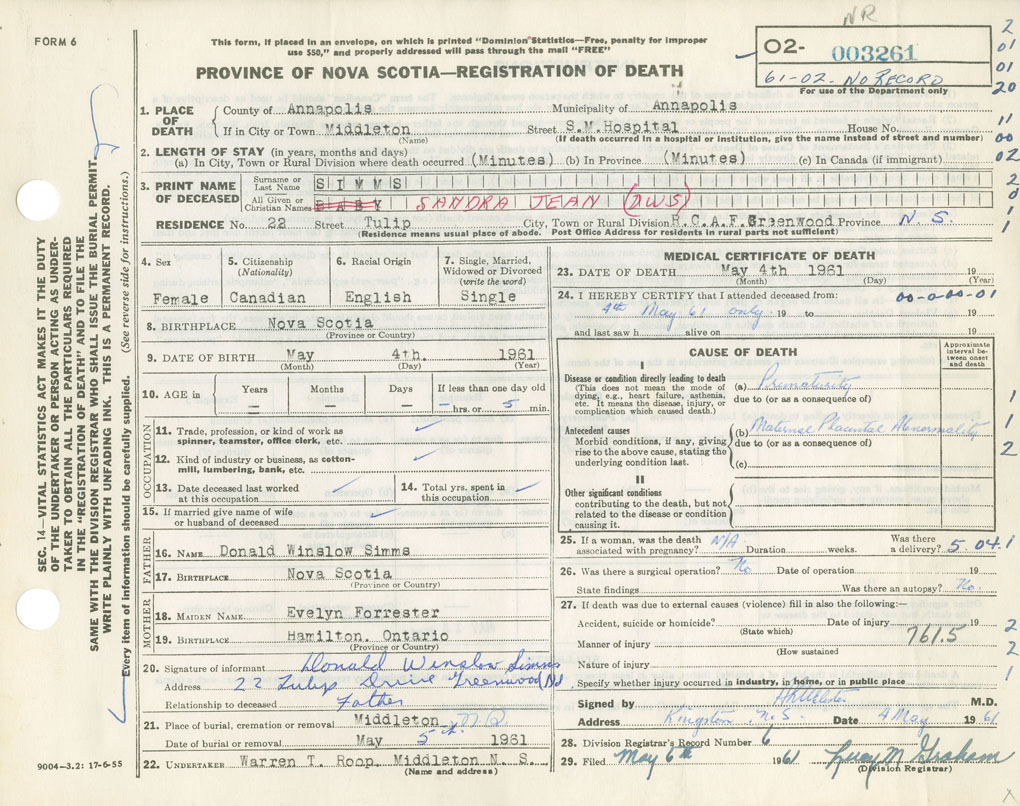 NR
FORM 6
This form, if placed in an envelope, on which is printed "Dominion Statistics—Free, penalty for improper
use $50," and properly addressed will pass through the mail "FREE"
PROVINCE OF NOVA SCOTIA—REGISTRATION OF DEATH
02- 003261
61-02- NO RECORD
For use of the Department only
2
01
01
20
11
00
02
2
0
1
1
SEC. 14—VITAL STATISTICS ACT MAKES IT THE DUTY
OF THE UNDERTAKER OR PERSON ACTING AS UNDER-
TAKER TO OBTAIN ALL THE PARTICULARS REQUIRED
IN THE "REGISTRATION OF DEATH" AND TO FILE THE
SAME WITH THE DIVISION REGISTRAR WHO SHALL ISSUE THE BURIAL PERMIT.
WRITE PLAINLY WITH UNFADING INK. THIS IS A PERMANENT RECORD.
Every item of information should be carefully supplied. (See reverse side for instructions.)
1. PLACE OF DEATH County of Annapolis Municipality of Annapolis
If in City or Town Middleton Street S.M.Hospital House No.
(Name) (If death occurred in a hospital or Institution, give the name instead of street and number)
2. LENGTH OF STAY (in years, months and days)
(a) In City, Town or Rural Division where death occurred (Minutes) (b) In Province (Minutes) (c) In Canada (if immigrant)
3. PRINT NAME OF DECEASED Surname or Last Name SIMMS
All Given or Christian Names BABY SANDRA JEAN (DWS)
RESIDENCE No. 22 Street Tulip City, Town or Rural Division R.C.A.F.Greenwood Province N.S.
(Residence means usual place of abode. Post Office Address for residents in rural parts not sufficient)
4. Sex
Female
5. Citizenship
(Nationality)
Canadian
6. Racial Origin
English
7. Single, Married,
Widowed or Divorced
(write the word)
Single
8. BIRTHPLACE Nova Scotia
(Province or Country)
9. DATE OF BIRTH May 4th. 1961
(Month) (Day) (Year)
10. AGE in Years Months Days If less than one day old
— — — — hrs. or 5 min.
OCCUPATION
11. Trade, profession, or kind of work as
spinner, teamster, office clerk, etc.
12. Kind of industry or business, as cotton-
mill, lumbering, bank, etc.
13. Date deceased last worked
at this occupation
14. Total yrs. spent in
this occupation
15. If married give name of wife
or husband of deceased
FATHER
16. NAME Donald Winslow Simms
17. BIRTHPLACE Nova Scotia
(Province or Country)
MOTHER
18. MAIDEN NAME Evelyn Forrester
19. BIRTHPLACE Hamilton. Ontario
(Province or Country)
20. Signature of informant Donald Winslow Simms
Address 22 Tulip Drive Greenwood
Relationship to deceased Father
21. Place of burial, cremation or removal Middleton
Date of burial or removal May 5th. 1961
22. UNDERTAKER Warren T. Roop. Middleton N. S.
(Name and address)
9004—3.2: 17-6-55
MEDICAL CERTIFICATE OF DEATH
23. DATE OF DEATH May 4th 1961 19
(Month) (Day) (Year)
24. I HEREBY CERTIFY that I attended deceased from: 00-0-00-01
4th May 61 only 19 to 19
and last saw h alive on 19
CAUSE OF DEATH
Approximate
interval be-
tween onset
and death
I
Disease or condition directly leading to death
(This does not mean the mode of
dying, e.g., heart failure, asthenia,
etc. It means the disease, injury, or
complication which caused death.)
(a) Prematurity
due to (or as a consequence of)
Antecedent causes
Morbid conditions, if any, giving
rise to the above cause, stating the
underlying condition last.
(b) Maternal Placental Abnormality
due to (or as a consequence of)
(c)
1
1
2
II
Other significant conditions
contributing to the death, but not
related to the disease or condition
causing it.
25. If a woman, was the death N/A Was there
associated with pregnancy? Duration weeks. a delivery? 5 04.1
26. Was there a surgical operation? No Date of operation 19
State findings Was there an autopsy? No.
27. If death was due to external causes (violence) fill in also the following:—
Accident, suicide or homicide? Date of injury 19
(State which) 761.5
Manner of injury
(How sustained
Nature of injury
Specify whether injury occurred in industry, in home, or in public place
1
2
2
1
Signed by M.D.
Address Kingston N.S. Date 4 May 1961
28. Division Registrar's Record Number 6
29. Filed May 6th 1961 Lucy M Graham
(Division Registrar)
x